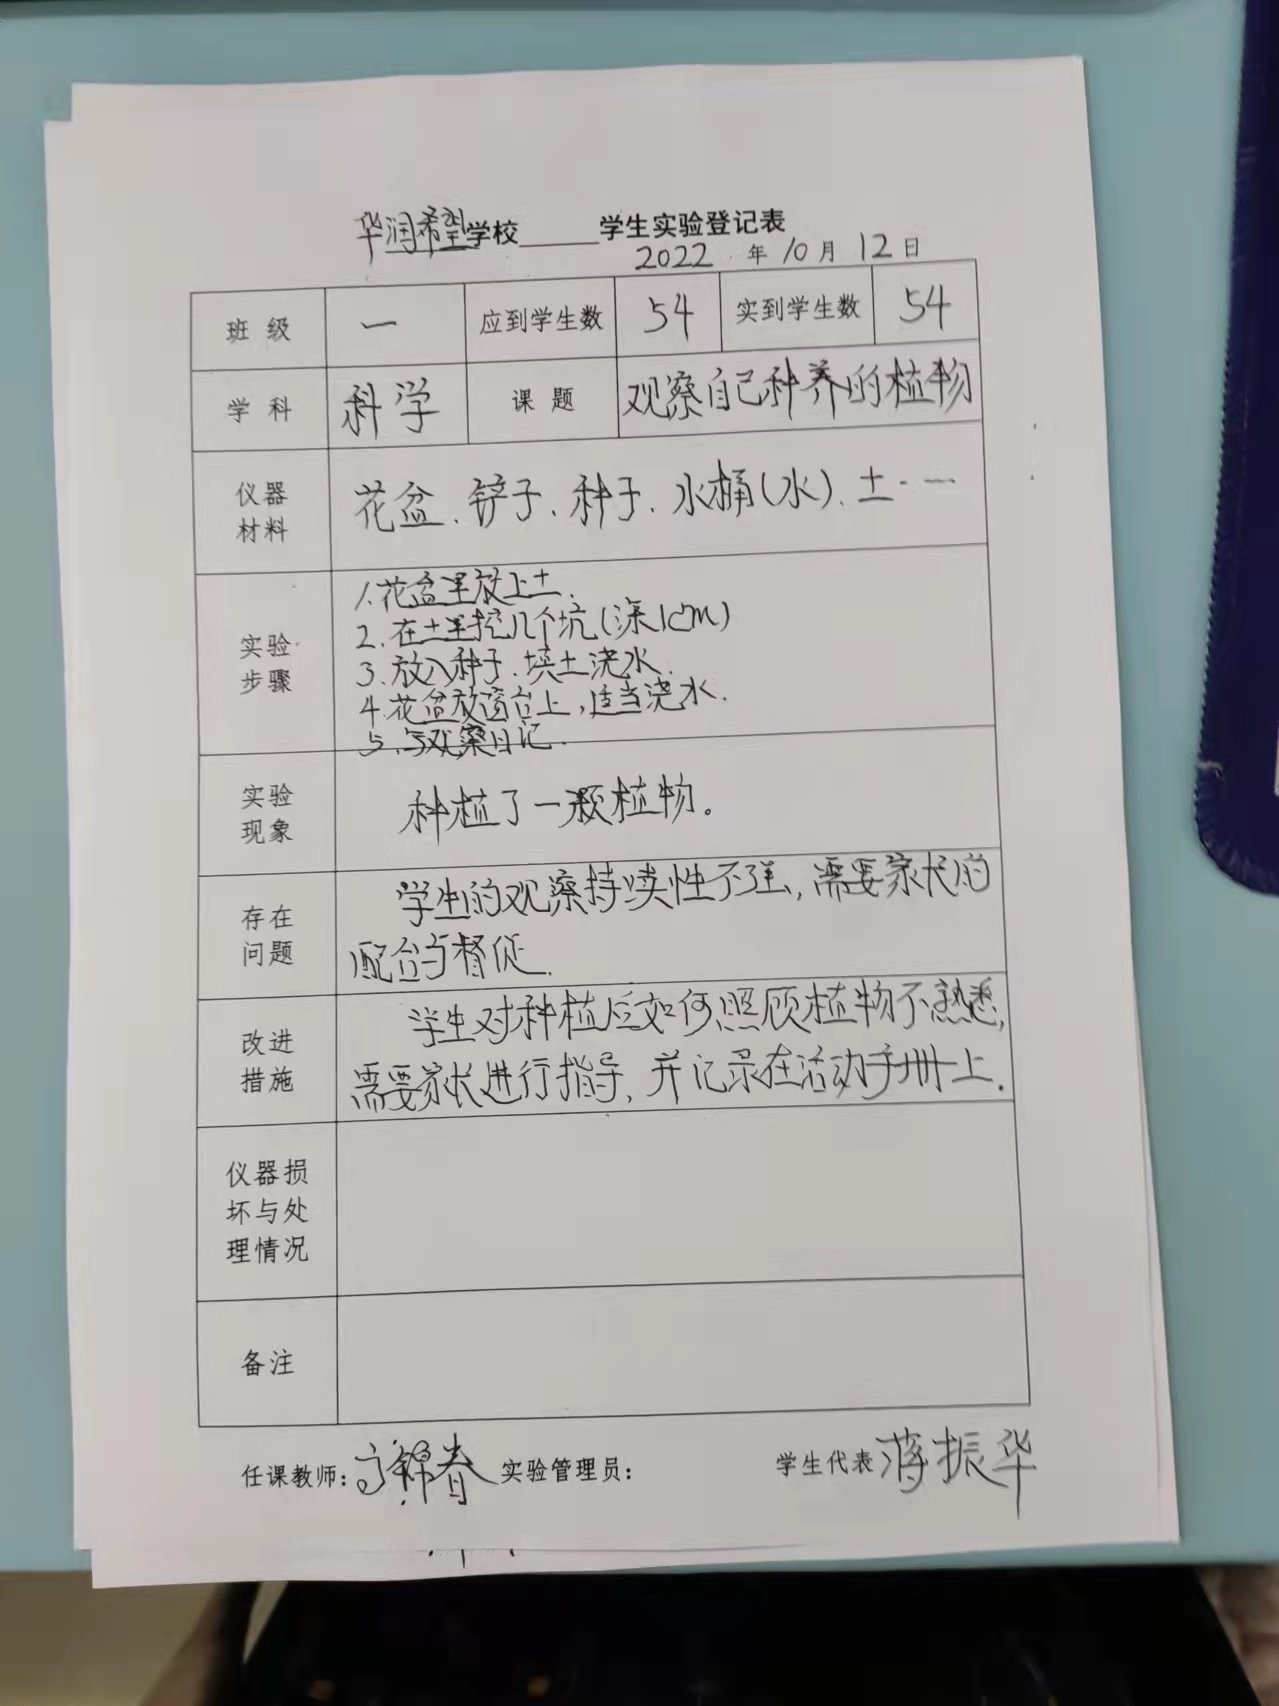 华润希望学校______学生实验登记表
2022 年 10 月 12 日
班 级 一 应到学生数 54 实到学生数 54
学 科 科学 课 题 观察自己种养的植物
仪器
材料
花盆、铲子、种子、水桶(水)、土……
实验
步骤
1.花盆里放上土.
2.在土里挖几个坑(深1cm)
3.放入种子.填土浇水.
4.花盆放窗台上,适当浇水.
5.写观察日记.
实验
现象
种植了一颗植物。
存在
问题
学生的观察持续性不强,需要家长的
配合与督促.
改进
措施
学生对种植后如何照顾植物不熟悉,
需要家长进行指导,并记录在活动手册上.
仪器损
坏与处
理情况
备注
任课教师: 锦春 实验管理员: 学生代表 蒋振华